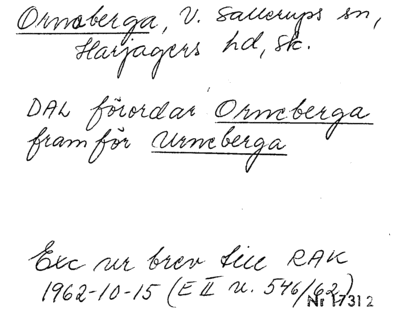 Ormaberga, V. Sallerups sn,
Harjagers hd, Sk.
DAL förordar Ormeberga
framför Urmeberga
Exc ur brev till RAK
1962-10-15 (E II u. 546/62)
Nr 17312